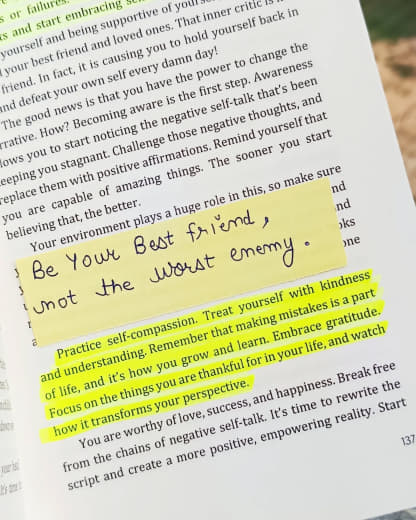 s or failures.
s and start embracing
yourself and being supportive of
your best friend and loved ones. That inner critic is
friend. In fact, it is causing you to hold yourself back in
and defeat your own self every damn day!
The good news is that you have the power to change the
rrative. How? Becoming aware is the first step. Awareness
lows you to start noticing the negative self-talk that's been
eeping you stagnant. Challenge those negative thoughts, and
replace them with positive affirmations. Remind yourself that
you are capable of amazing things. The sooner you start
believing that, the better.
Your environment plays a huge role in this, so make sure
nd
Be Your Best friend,
nd
oks
not the worst enemy.
one
a
Practice self-compassion. Treat yourself with kindness
and understanding. Remember that making mistakes is a part
of life, and it's how you grow and learn. Embrace gratitude.
Focus on the things you are thankful for in your life, and watch
how it transforms your perspective.
You are worthy of love, success, and happiness. Break free
from the chains of negative self-talk. It's time to rewrite the
script and create a more positive, empowering reality. Start
137